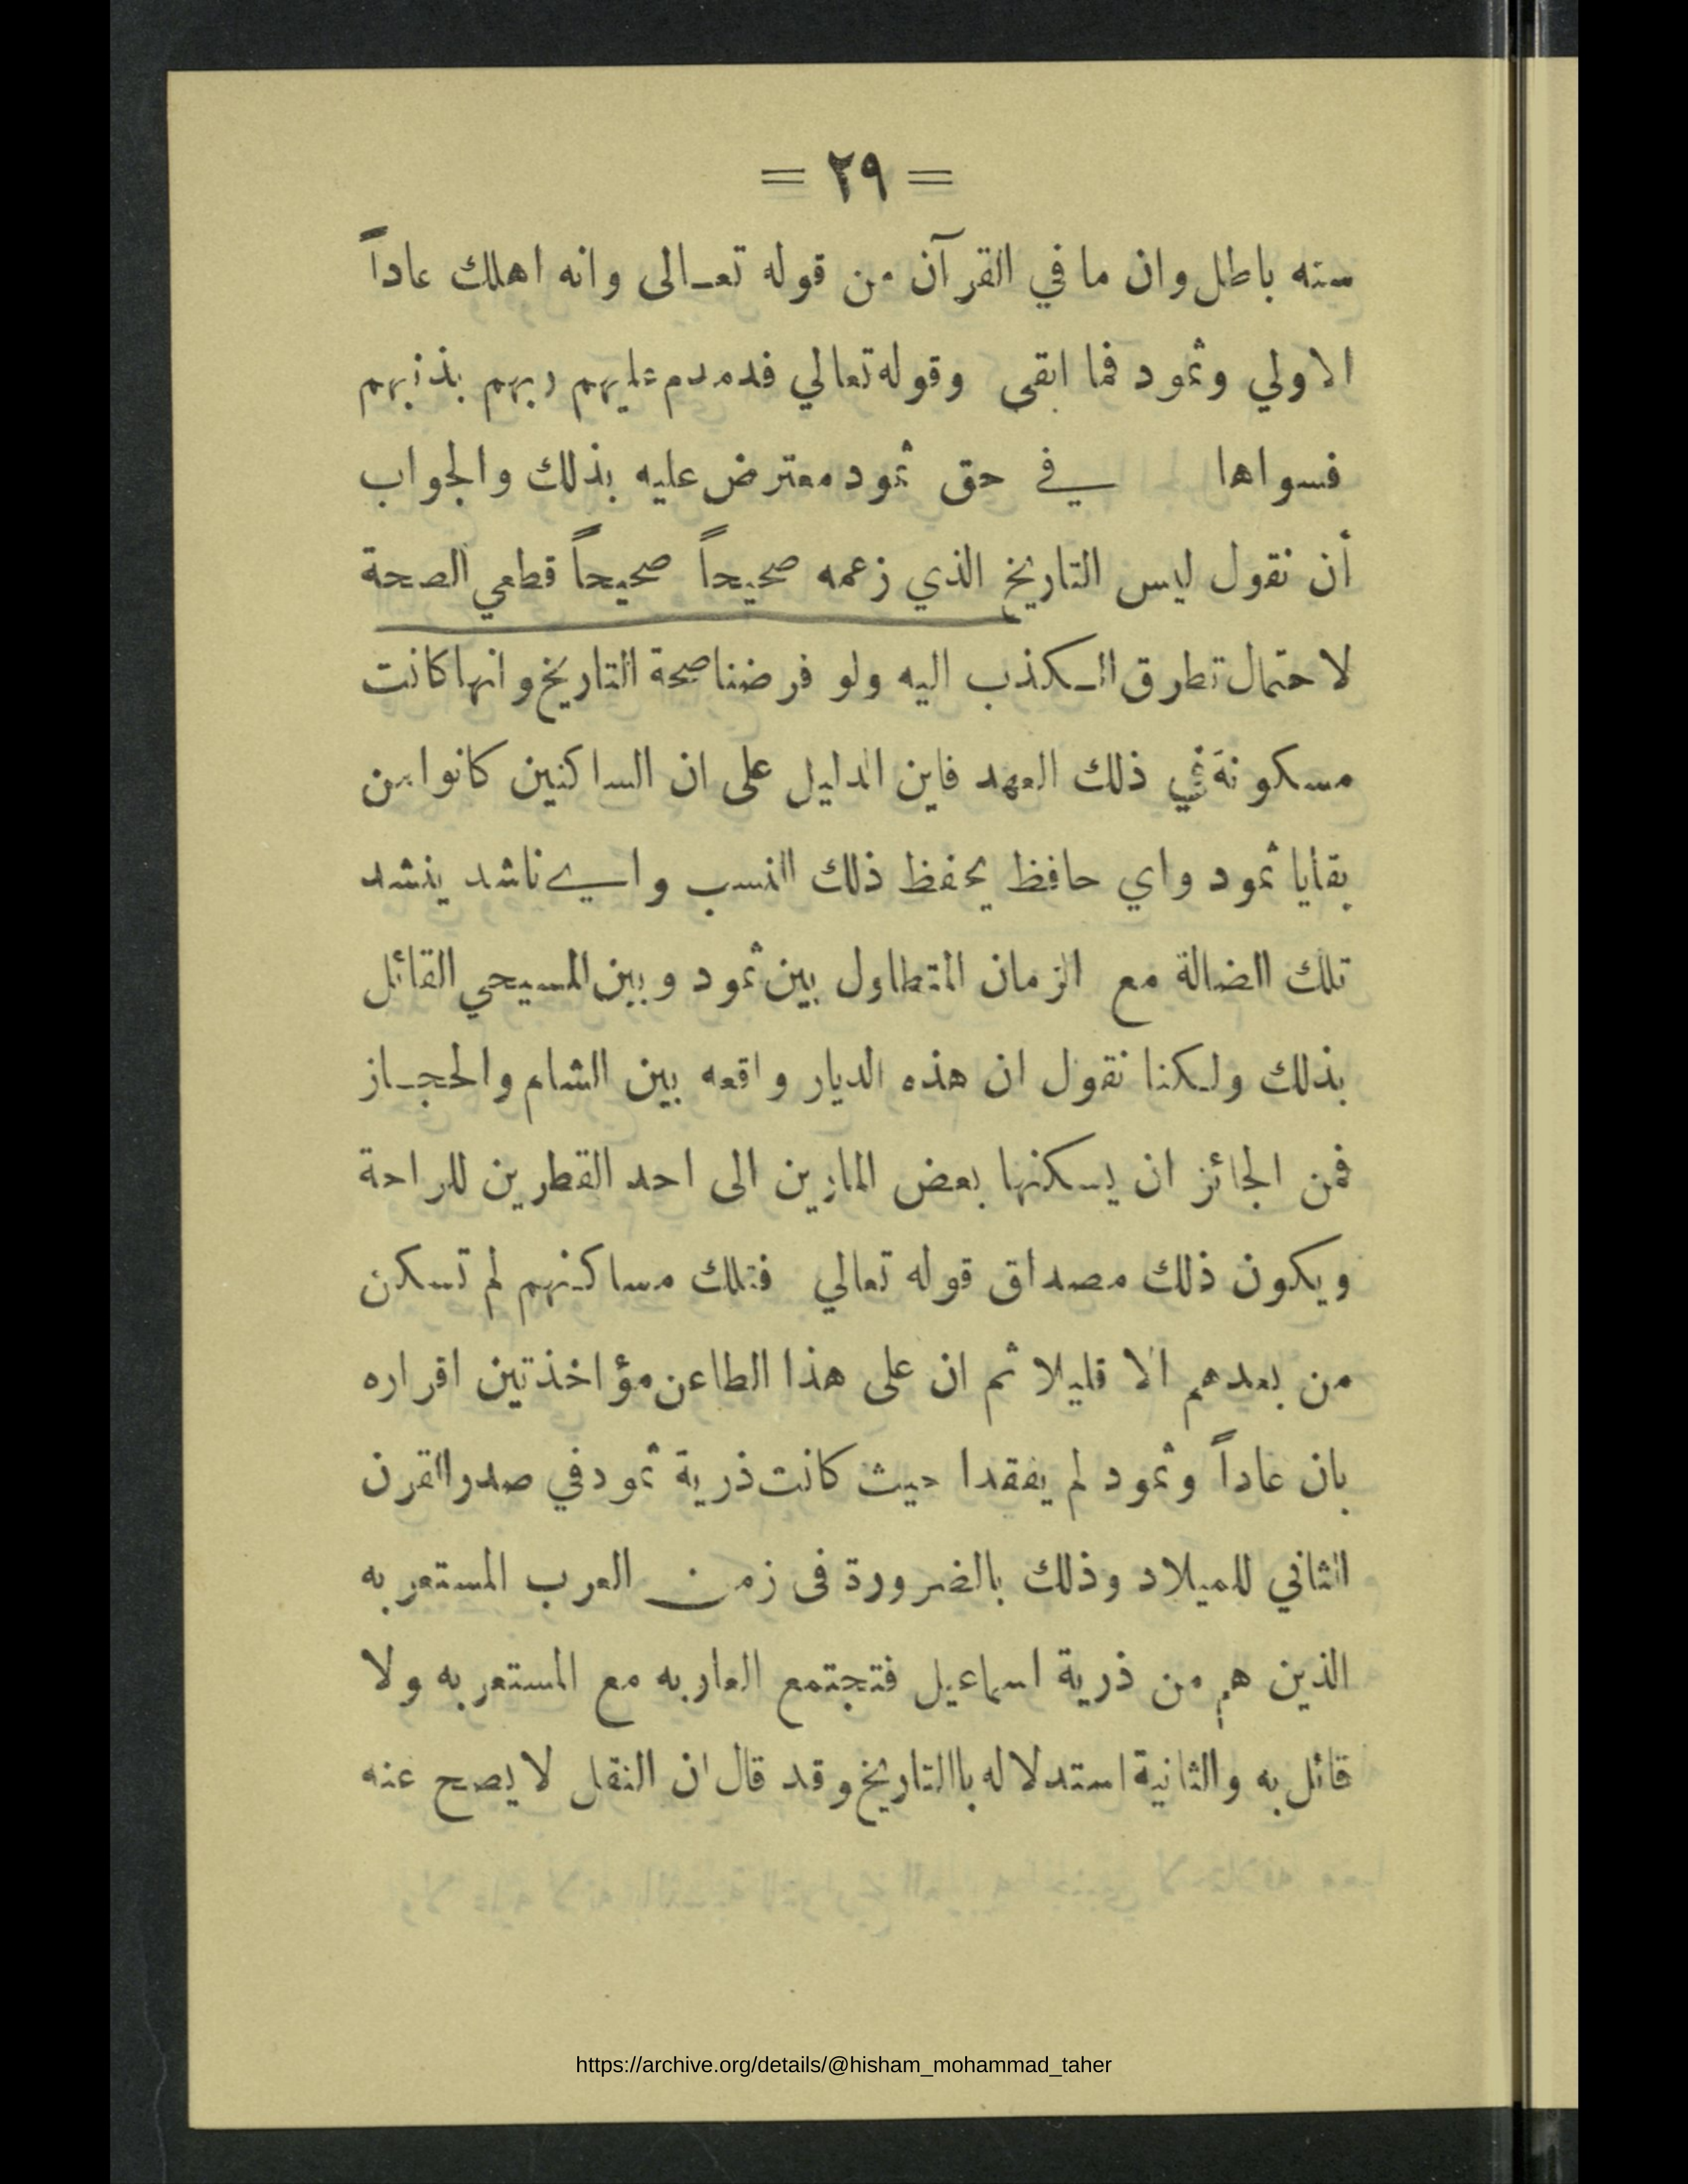 = ٢٩ =
سنه باطل وان ما في القرآن من قوله تعالى وانه اهلك عاداً
الاولي وثمود فما ابقى وقوله تعالي فدمدم عليهم ربهم بذنبهم
فسواها في حق ثمود معترض عليه بذلك والجواب
أن نقول ليس التاريخ الذي زعمه صحيحاً صحيحاً قطعي الصحة
لاحتمال تطرق الكذب اليه ولو فرضنا صحة التاريخ وانها كانت
مسكونة في ذلك العهد فاين الدليل على ان الساكنين كانوا من
بقايا ثمود واي حافظ يحفظ ذلك النسب واي ناشد ينشد
تلك الضالة مع الزمان المتطاول بين ثمود وبين المسيحي القائل
بذلك ولكنا نقول ان هذه الديار واقعه بين الشام والحجاز
فمن الجائز ان يسكنها بعض المارين الى احد القطرين للراحة
ويكون ذلك مصداق قوله تعالي فتلك مساكنهم لم تسكن
من بعدهم الا قليلا ثم ان على هذا الطاعن مؤاخذتين اقراره
بان عاداً وثمود لم يفقدا حيث كانت ذرية ثمود في صدر القرن
الثاني للميلاد وذلك بالضرورة فى زمن العرب المستعربه
الذين هم من ذرية اسماعيل فتجتمع العاربه مع المستعربه ولا
قائل به والثانية استدلاله باالتاريخ وقد قال ان النقل لا يصح عنه
https://archive.org/details/@hisham_mohammad_taher